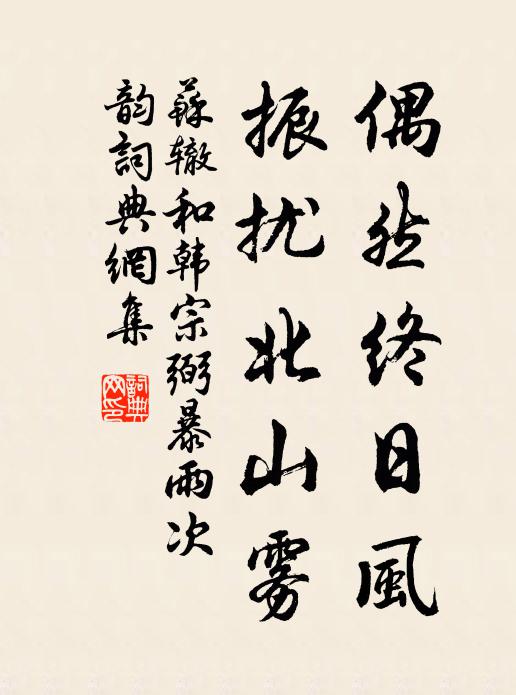 偶然终日風
振扰北山雾
蘇辙和韩宗弼暴雨次
韵詞典網集
詞典
网印